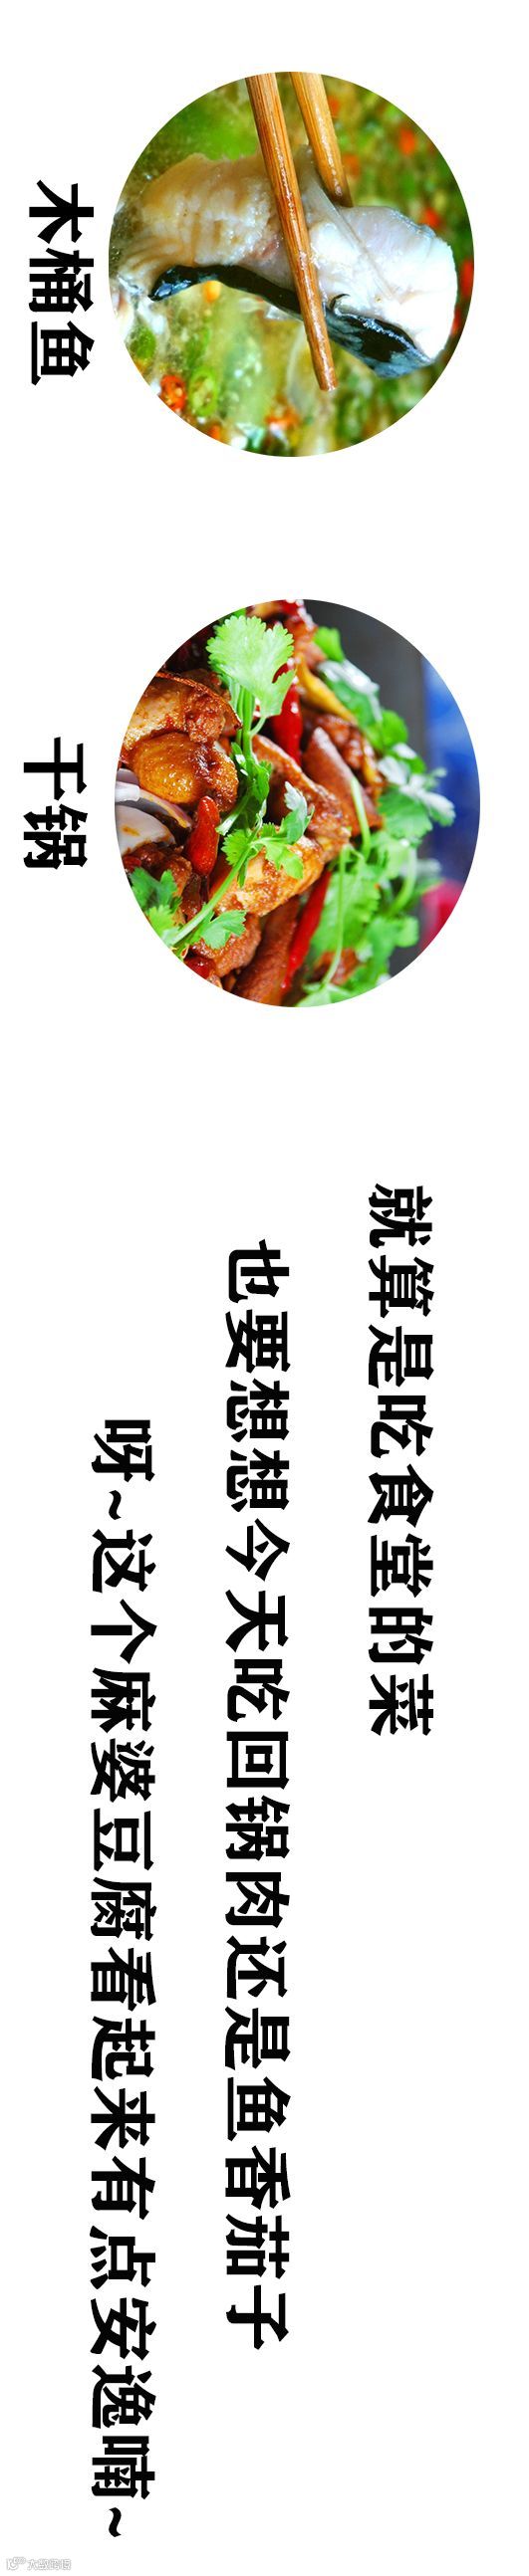 木桶鱼
干锅
就算是吃食堂的菜
也要想想今天吃回锅肉还是鱼香茄子
呀~这个麻婆豆腐看起来有点安逸喃~